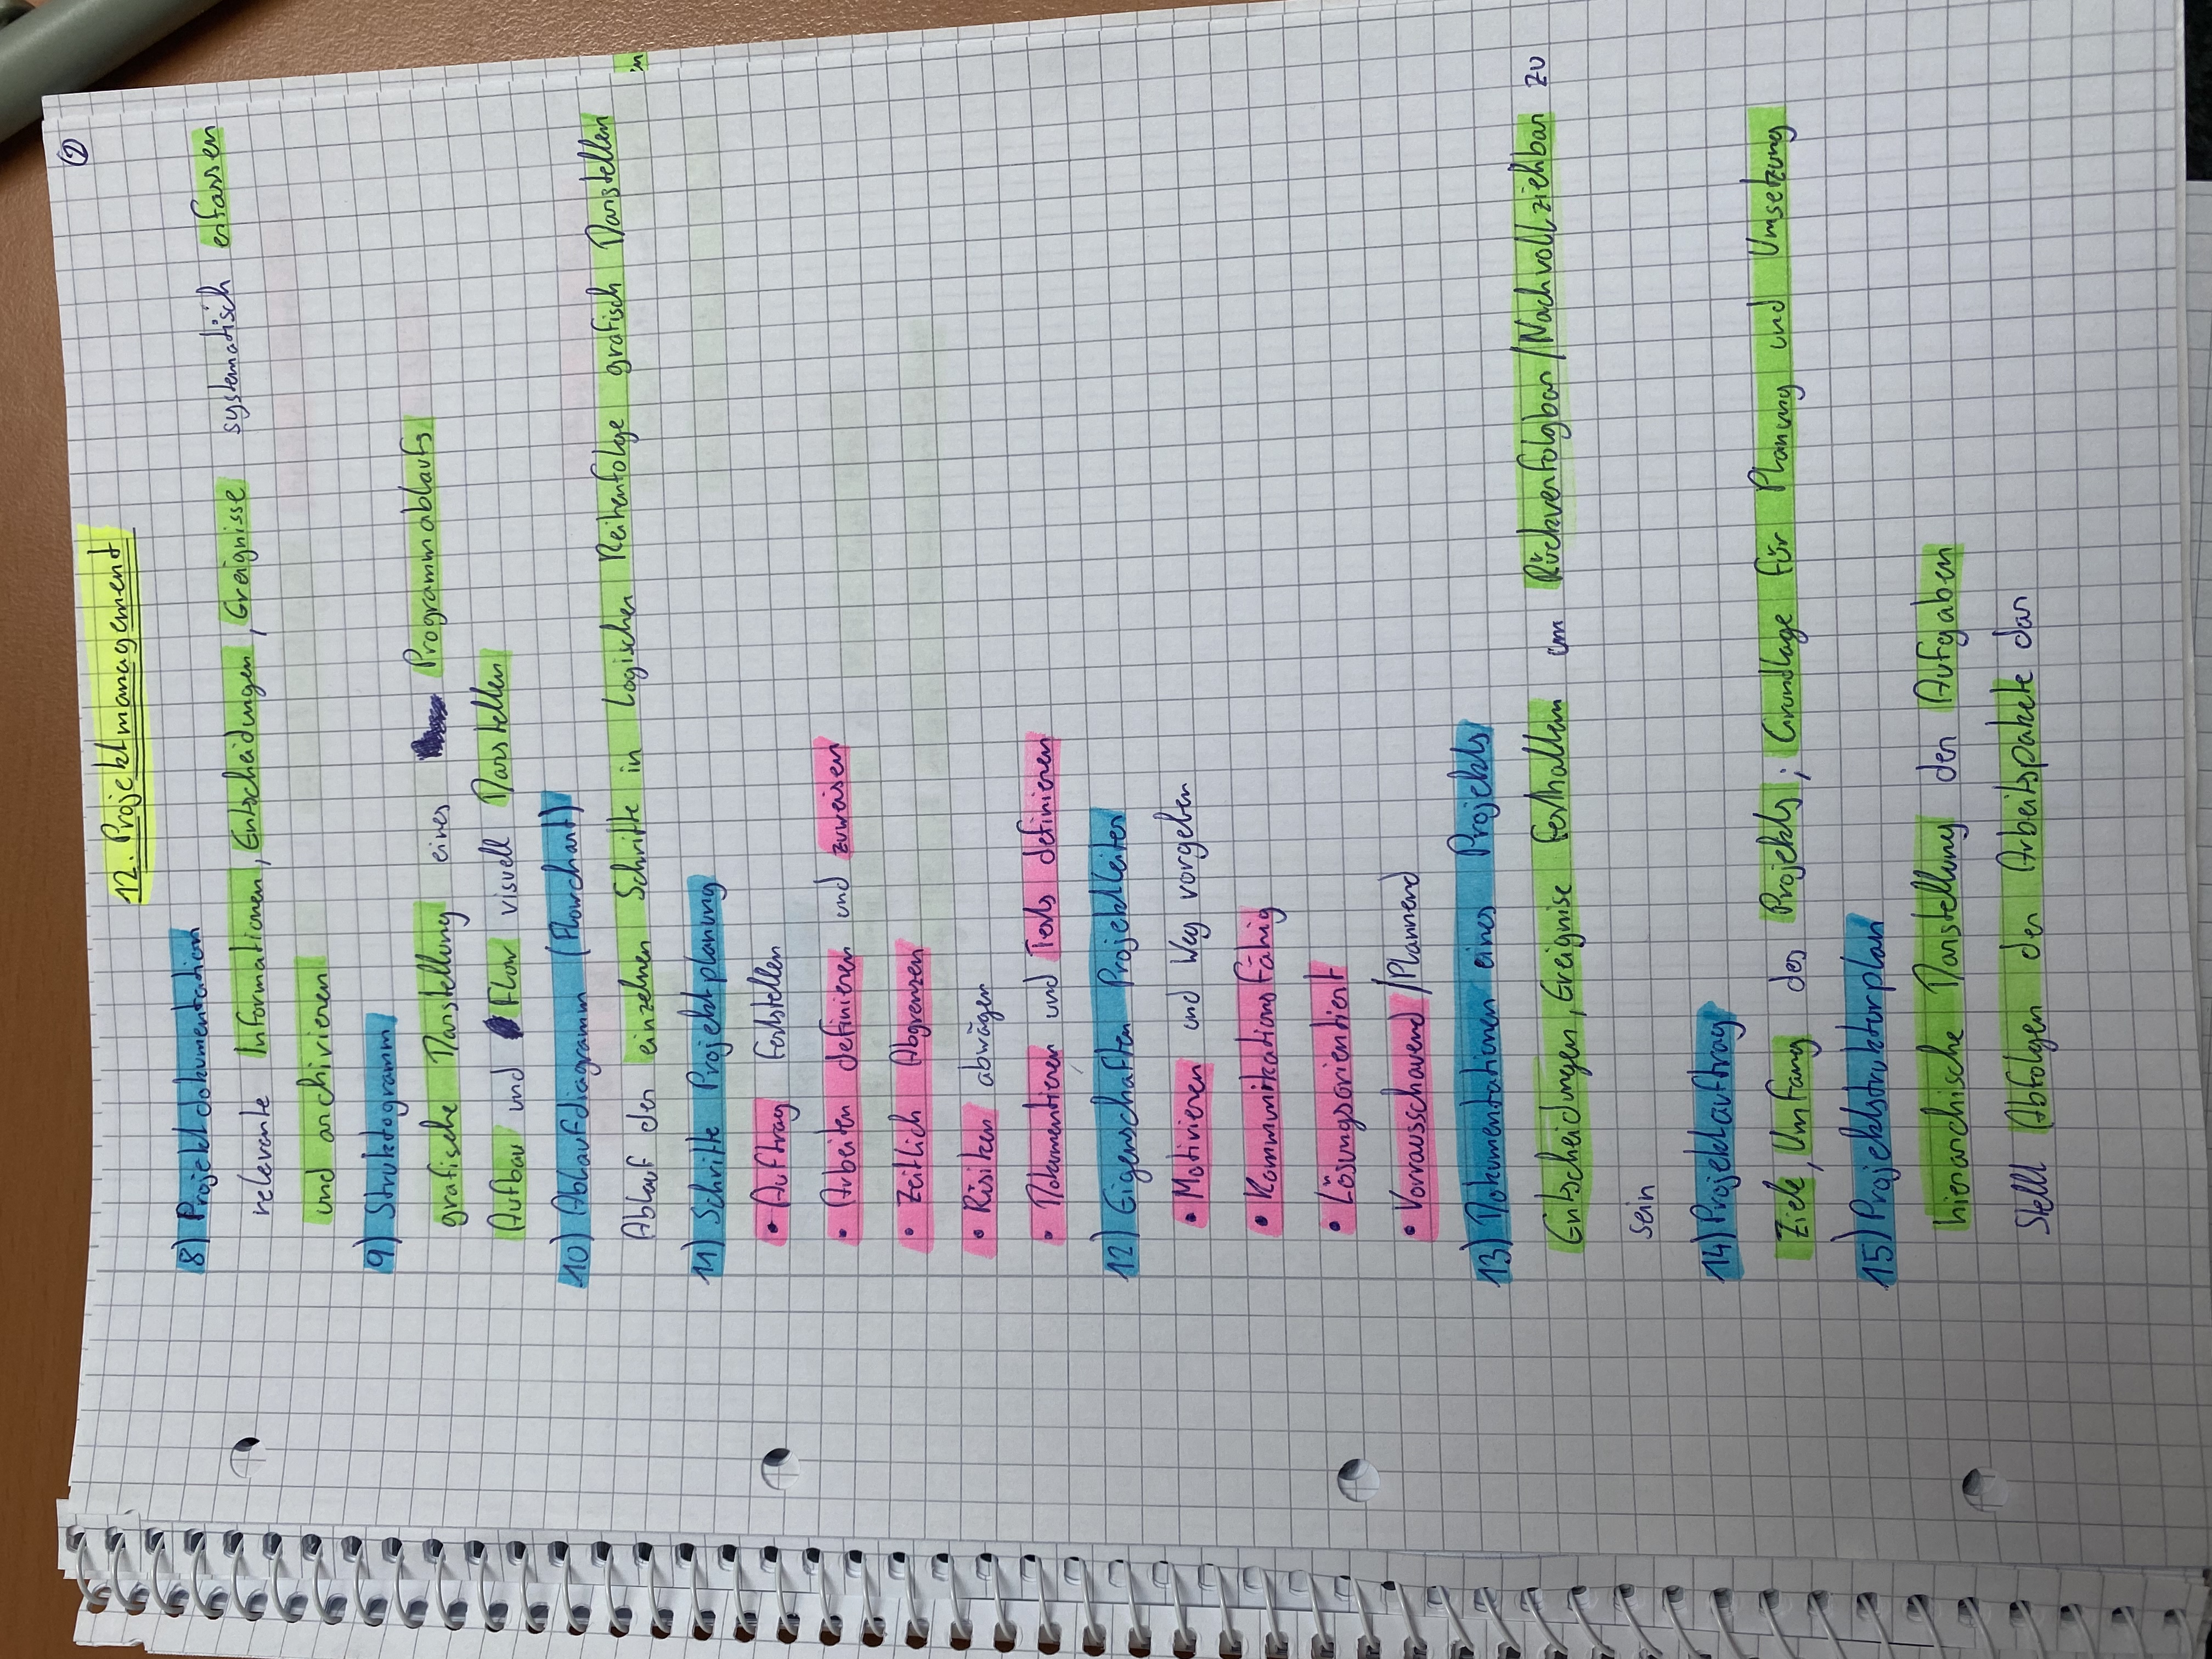 2
12. Projektmanagement
8) Projektdokumentation
relevante Informationen, Entscheidungen, Ereignisse systematisch erfassen
und archivieren
9) Struktogramm
grafische Darstellung eines Programmablaufs
Aufbau und Flow visuell Darstellen
10) Ablaufdiagramm (Flowchart)
Ablauf der einzelnen Schritte in Logischer Reihenfolge grafisch Darstellen
11) Schritte Projektplanung
• Auftrag feststellen
• Arbeiten definieren und zuweisen
• Zeitlich Abgrenzen
• Risiken abwägen
• Dokumentieren und Tests definieren
12) Eigenschaften Projektleiter
• Motivieren und Weg vorgeben
• Kommunikationsfähig
• Lösungsorientiert
• Vorrausschauend/Plannend
13) Dokumentationen eines Projekts
Entscheidungen, Ereignise festhalten um Rückverfolgbar/Nachvollziehbar zu
sein
14) Projektauftrag
Ziele, Umfang des Projekts; Grundlage für Planung und Umsetzung
15) Projektstrukturplan
hierarchische Darstellung der Aufgaben
Stellt Abfolgen der Arbeitspakete dar